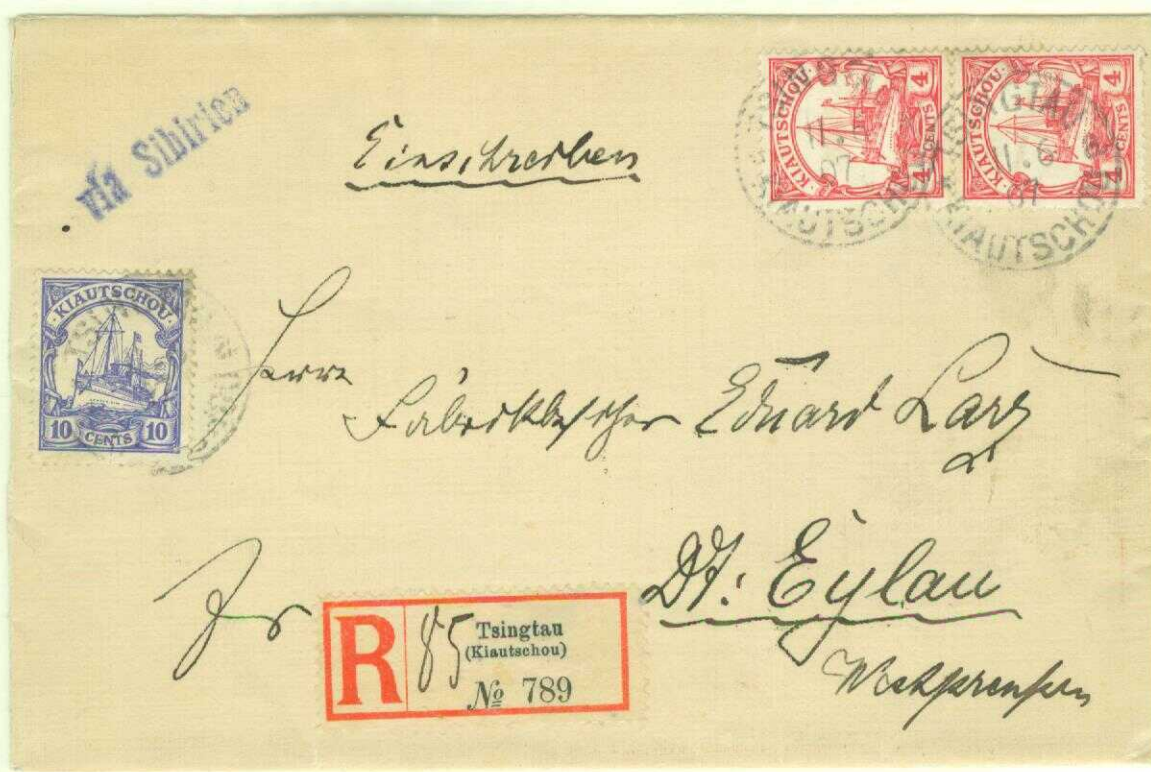 via Sibirien
Einschreiben
KIAUTSCHOU
4 CENTS 4
KIAUTSCHOU
4 CENTS 4
TSINGTAU
KIAUTSCHOU
TSINGTAU
KIAUTSCHOU
KIAUTSCHOU
10 CENTS 10
Herrn
Fabrikbesitzer Eduard
Dt: Eylau
Westpreußen
R 85 Tsingtau
(Kiautschou)
№ 789